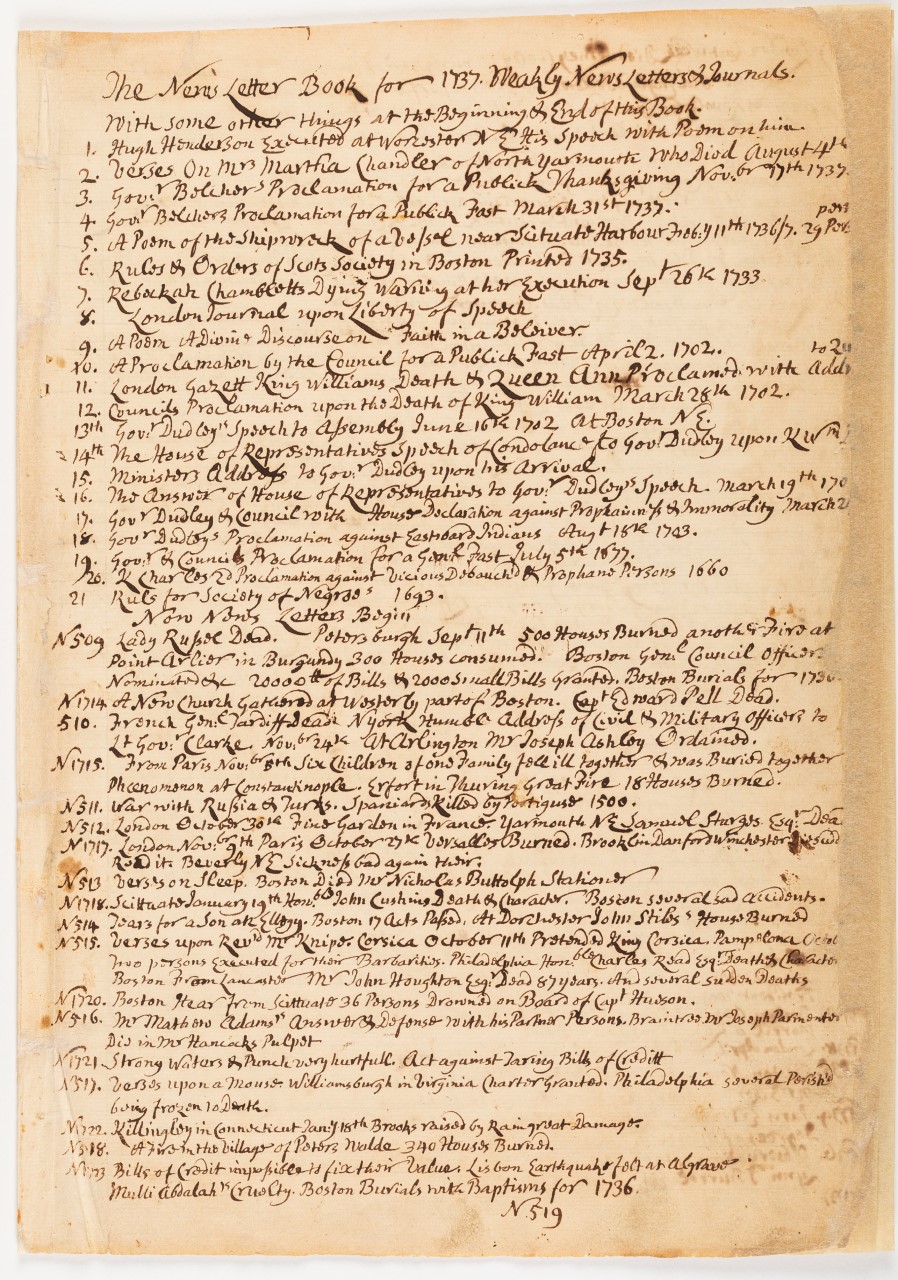 The News Letter Book for 1737. Weakly News Letters & Journals.
With some other things at the Beginning & End of this Book.
1. Hugh Henderson Executed at Worcester N E His Speech with Poem on him
2. Verses On Mrs Martha Chandler of North Yarmouth Who Died August 4th
3. Govr Belchers Proclamation for a Publick Thanksgiving Novbr 17th 1737.
4. Govr Belchers Proclamation for a Publick Fast March 31st 1737.
5. A Poem of the Shipwreck of a Vessel near Scituate Harbour Feb:y 11th 1736/7. 29 Per
6. Rules & Orders of Scots Society in Boston Printed 1735.
7. Rebeckah Chambletts Dying Warning at her Execution Sept 26th 1733
8. London Journal upon Liberty of Speech
9. A Poem A Divine Discourse on Faith in a Beleiver.
10. A Proclamation by the Council for a Publick Fast April 2. 1702.
11. London Gazett King Williams Death & Queen Ann Proclamed. with Addr
12. Councils Proclamation upon the Death of King William March 28th 1702.
13th Govr Dudleys Speech to Assembly June 16th 1702 At Boston N E.
14th The House of Representatives Speech of Condolance to Govr Dudley upon K Wm
15. Ministers Address to Govr Dudley upon his Arrival.
16. The Answer of House of Representatives to Govr Dudleys Speech. March 19th 170
17. Govr Dudley & Council with House Declaration against Prophainness & Immorality March 2
18. Govr Dudleys Proclamation against Eastward Indians Augt 18th 1703.
19. Govr & Councils Proclamation for a Genl Fast July 5th 1677.
20. K Charles 2d Proclamation against Vicious Debauch'd & Prophane Persons 1660
21 Ruls for Society of Negroes 1693.
Now News Letters Begin
N 509 Lady Russel Dead. Petersburgh Sept 11th 500 Houses Burned another Fire at
Point Arlier in Burgundy 300 Houses consumed. Boston Genl Council Officer
Nominated &c 20000 lb of Bills & 2000 Small Bills Granted. Boston Burials for 1736
N 1714. A New Church Gathered at Westerly part of Boston. Capt Edward Pell Dead.
510. French Genl Tardiff dead N York Humble Address of Civil & Military Officers to
Lt Govr Clarke. Novbr 24th At Arlington Mr Joseph Ashley Ordained.
N 1715. From Paris Novbr 8th Six Children of one Family fell ill together & was Buried together
Phœnomenon at Constantinople. Erfort in Thuring Great Fire 18 Houses Burned.
N 511. War with Russia & Turks. Spaniards killed by Portiguse 1500.
N 512. London October 30th Fine Garden in France Yarmouth N E Samuel Sturges Esqr Dea
N 1717. London Novbr 9th Paris October 27th Versalles Burned. Brooklin Danford Winchester
Read it. Beverly N E Sickness bad again their.
N 513 Verses on Sleep. Boston Died Mr Nicholas Buttolph Stationer
N 1718. Scittuate January 19th Honble John Cushing Death & Character. Boston several sad accidents.
N 514 Tears for a Son an Ellegy. Boston 17 Acts Passed. At Dorchester John Stiles House Burned
N 515. Verses upon Revd Mr Knipe. Corsica October 11th Pretended King Corsica. Pampelona Octob
two persons Executed for their Barbarities. Philadelphia Honble Charles Read Esqr Death & Character
Boston From Lancaster Mr John Houghton Esqr Dead 87 years. And several sudden Deaths
N 1720. Boston Hear from Scittuate 36 Persons Drowned on Board of Capt Hudson.
N 516. Mr Mathew Adams's Answer & Defense with his Partner Persons. Braintree Mr Joseph Parmenter
Die in Mr Hancocks Pulpet
N 1721 Strong Waters & Punch very hurtfull. Act against Taring Bills of Creditt
N 517. Verses upon a Mouse Williamsburgh in Virginia Charter Granted. Philadelphia several Perish'd
being frozen to Death.
N 1722. Killingley in Connecticut Jany 18th Brooks raised by Rain great Damage.
N 518. A Fire in the Village of Peters Walde 340 Houses Burned.
N 1723 Bills of Credit impossible to fix their Value. Lisbon Earthquake felt at Algrave
Mulli Abdalah's Cruelty. Boston Burials with Baptisms for 1736.
N 519